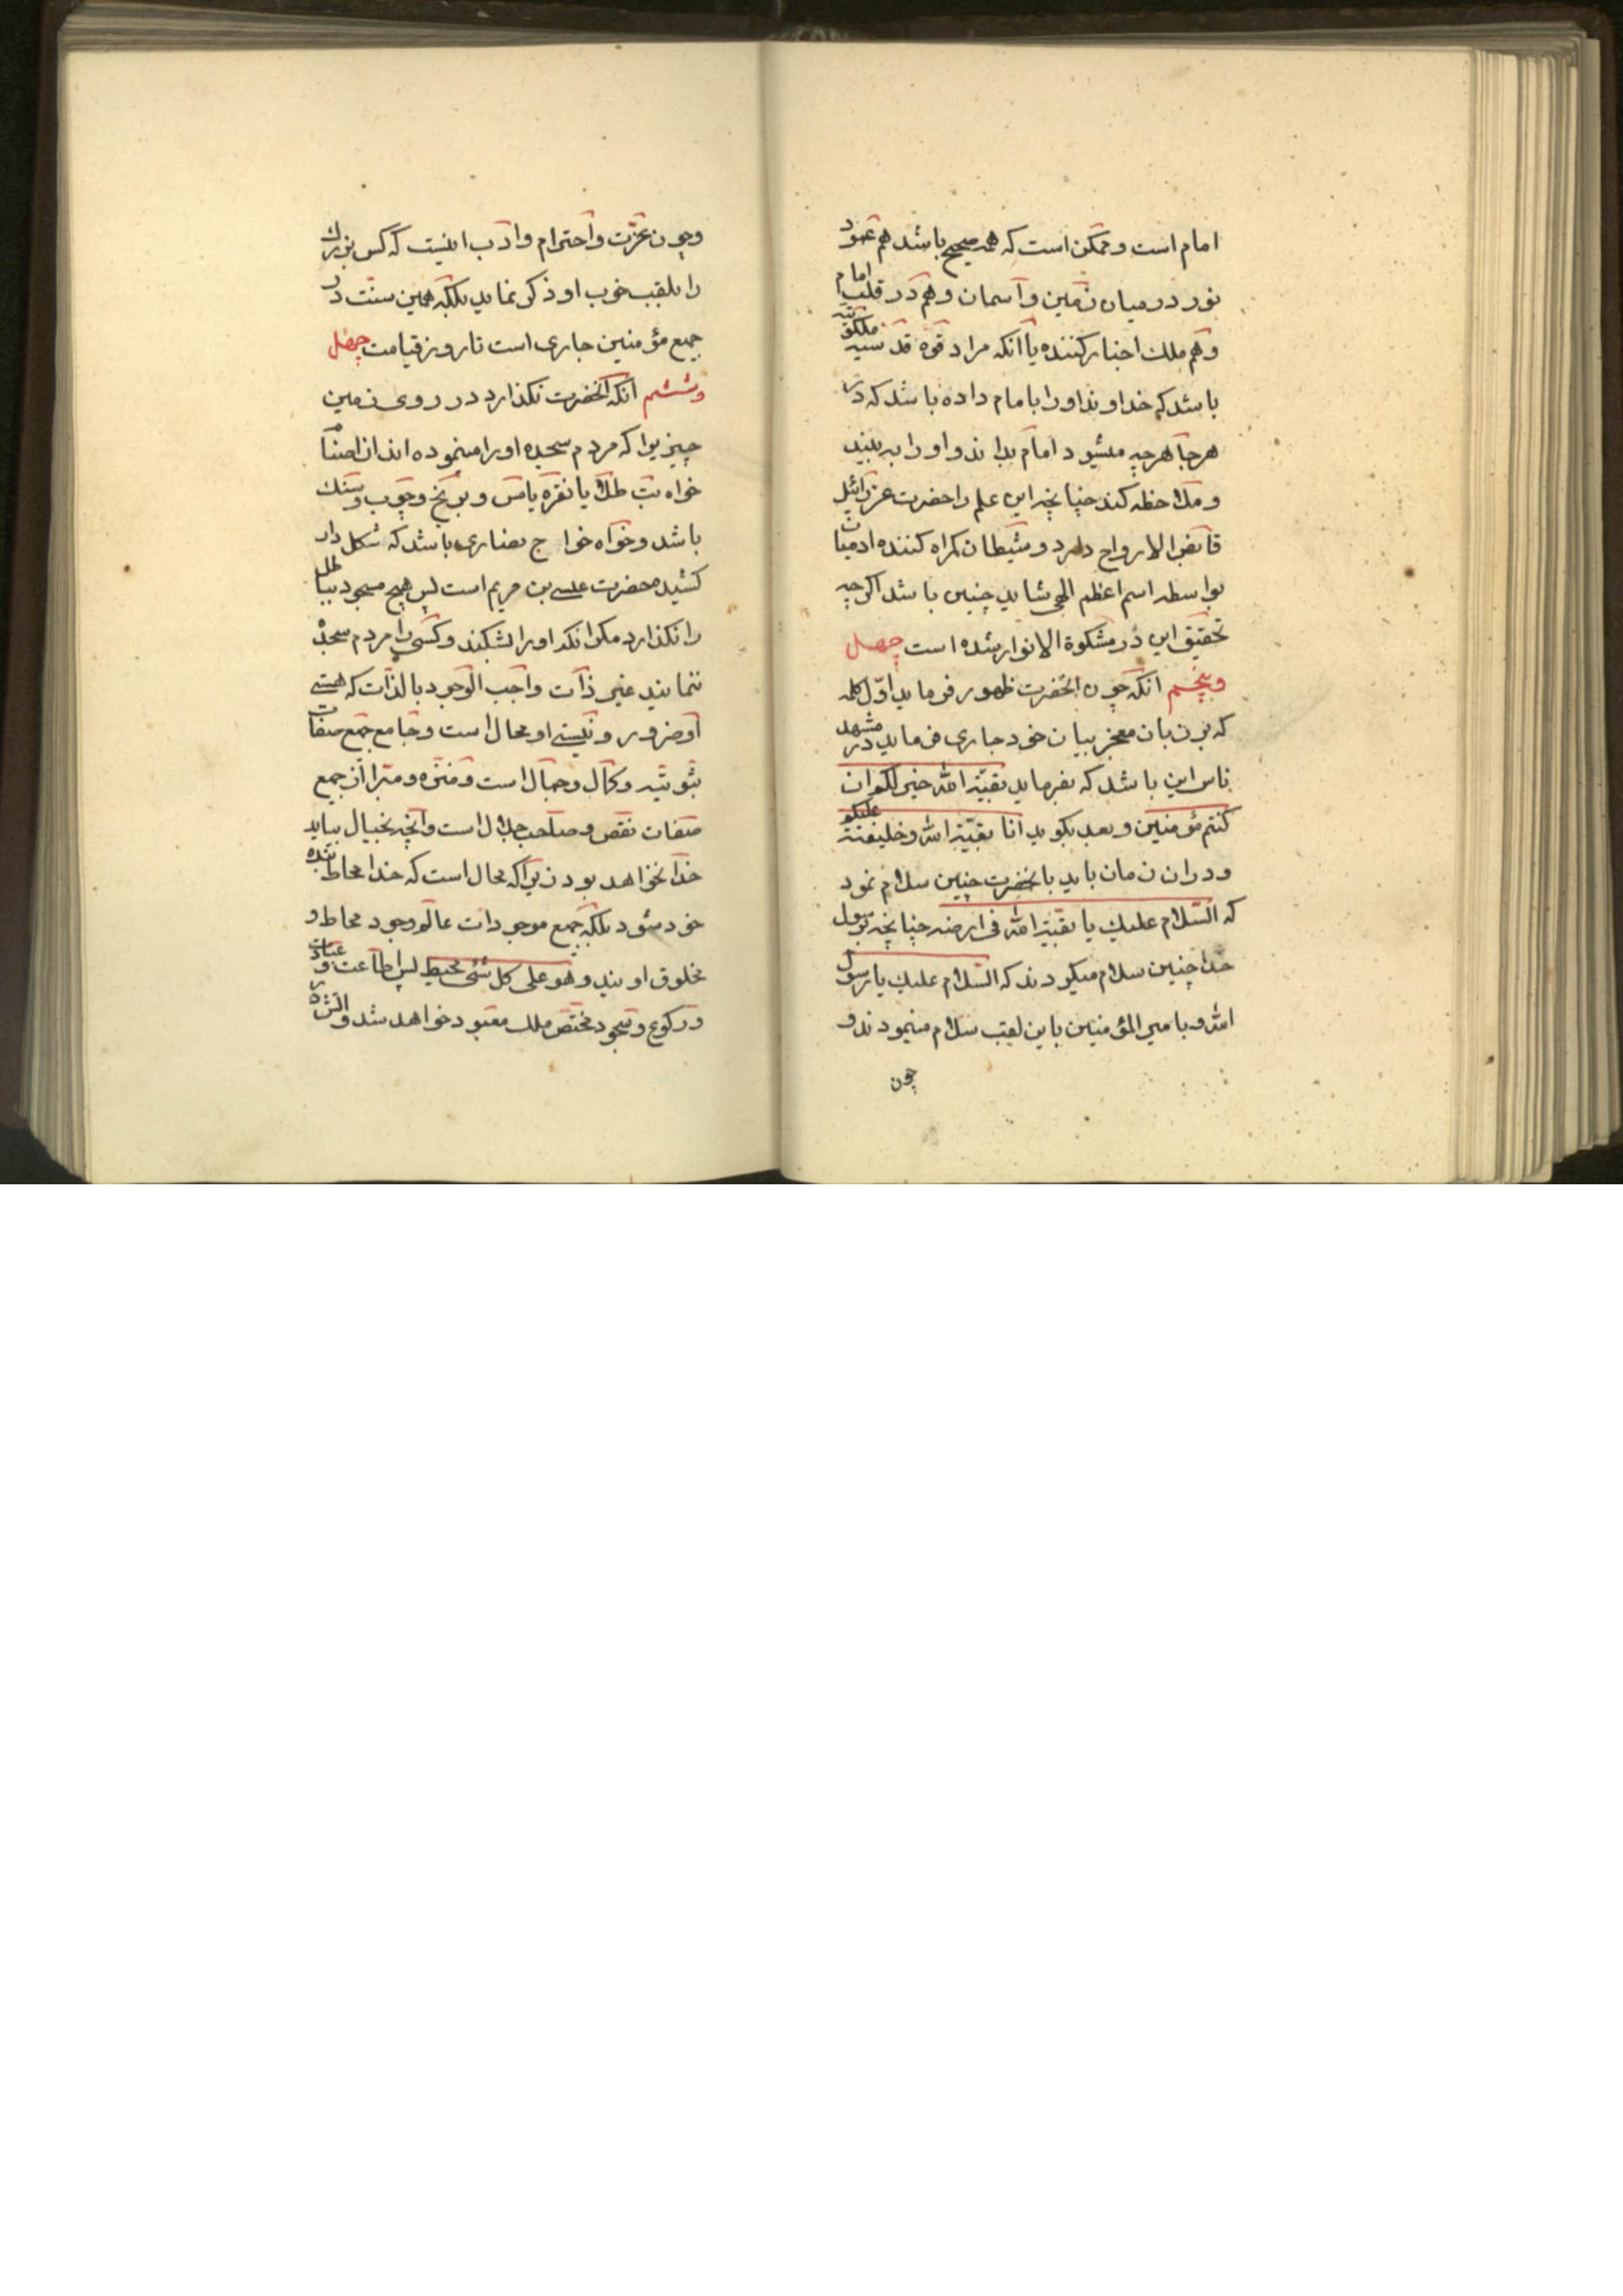 امام است و ممکن است که همه صحیح باشد هم عمود
نور در میان زمین و آسمان و هم در قلب امام
و هم ملک اخبار کننده یا آنکه مراد قوه قدسیه ملکوتیه
باشد که خداوند او را بامام داده باشد که در
هرجا هرچه میشود امام بداند و او را به بیند
و ملاحظه کند چنانچه این علم را حضرت عزرائیل
قابض الارواح دارد و شیطان کمراه کننده ادمیان
بواسطه اسم اعظم الهی شاید چنین باشد اکرچه
تحقیق این در مشکوة الانوار شده است چهل
و پنجم انکه چون انحضرت ظهور فرماید اوّل کلمه
که بزبان معجز بیان خود جاری فرماید در مشهد
ناس این باشد که بفرماید بقیّة الله خیر لکم ان
کنتم مؤمنین و بعد بکوید انا بقیّة الله و خلیفته علیکم
و دران زمان باید بانحضرت چنین سلام نمود
که السّلام علیک یا بقیّة الله فی ارضه چنانچه برسول
خدا چنین سلام میکردند که السّلام علیک یا رسول
الله و بامیر المؤمنین باین لقب سلام مینمودند و
چون
و چون عزّت و احترام و ادب اینست که کس بزرک
را بلقب خوب او ذکر نماید بلکه همین سنّت در
جمیع مؤمنین جاری است تا روز قیامت چهل
و ششم انکه انحضرت نکذارد در روی زمین
چیزیرا که مردم سجده او را مینموده اند از اصنام
خواه بت طلا یا نقره یا مس و برنج و چوب و سنک
باشد و خواه خاج نصاری باشد که شکل دار
کشیدن حضرت عیسی بن مریم است پس هیچ مسجود بباطل
را نکذارد مکر انکه او را بشکند و کسی را مردم سجده
ننمایند غیر ذات واجب الوجود بالذات که هستی
او ضرور و نیستی او محال است و جامع جمیع صفات
ثبوتیّه و کمال و جمال است و منزّه و مبرّا از جمیع
صفات نقص و صاحب جلال است و انچه بخیال بیاید
خدا نخواهد بود زیرا که محال است که خدا محاط بنده
خود شود بلکه جمیع موجودات عالم وجود محاط و
مخلوق اویند و هو علی کل شئ محیط پس اطاعت و عبادت
و رکوع و سجود مختصّ ملک معبود خواهد شد و